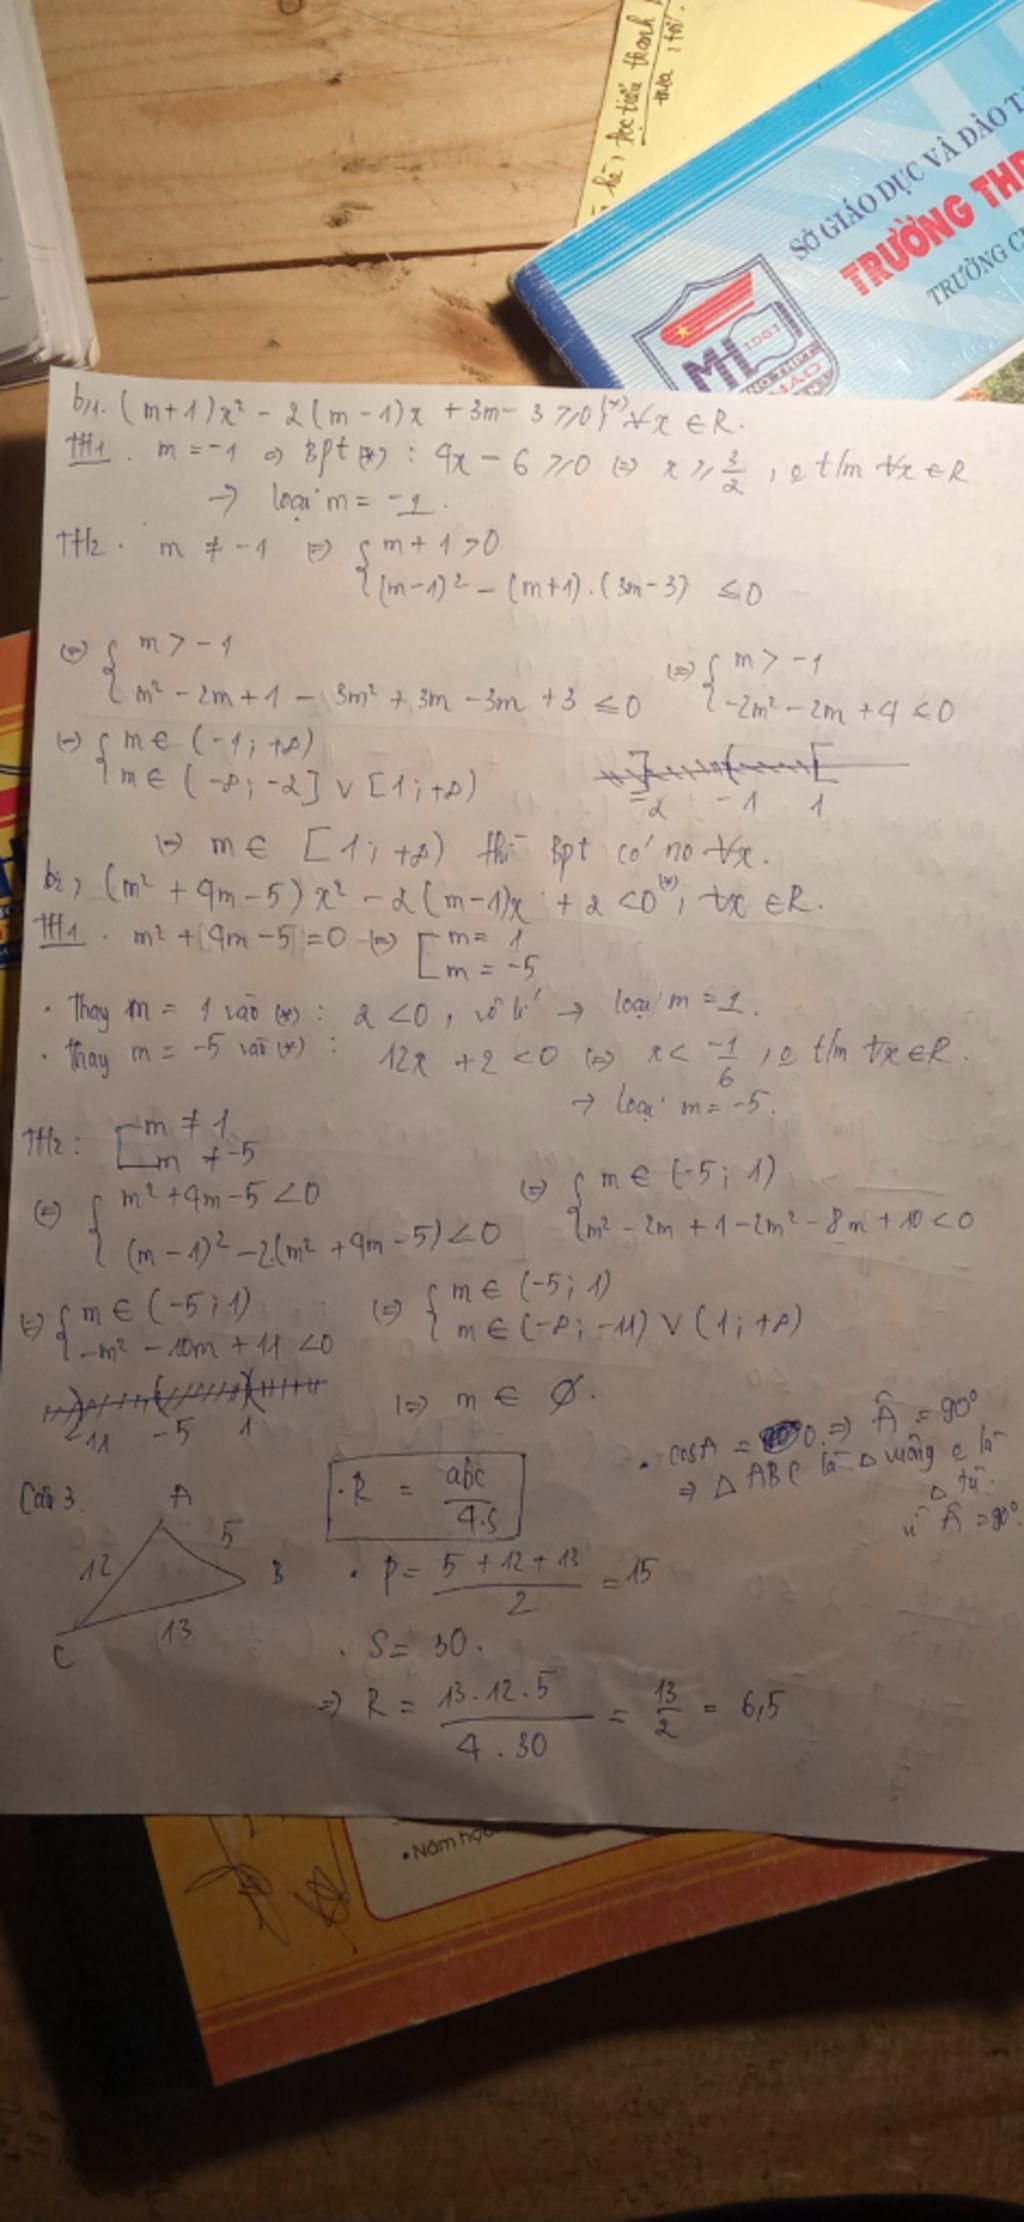 hè, học tiến thanh
SỞ GIÁO DỤC VÀ ĐÀO T
TRƯỜNG THP
TRƯỜNG C
1981
b1. (m+1)x² - 2(m-1)x + 3m - 3 ≥ 0 (*) ∀x ∈ R.
TH1. m = -1 => Bpt (*) : 4x - 6 ≥ 0 (=) x ≥ 3/2 , o t/m ∀x ∈ R
→ loại m = -1.
TH2. m ≠ -1 (=) { m + 1 > 0
(m-1)² - (m+1).(3m-3) ≤ 0
(=) { m > -1
m² - 2m + 1 - 3m² + 3m - 3m + 3 ≤ 0
(=) { m > -1
-2m² - 2m + 4 ≤ 0
(=) { m ∈ (-1; +∞)
m ∈ (-∞; -2] ∨ [1; +∞)
-2 -1 1
(=) m ∈ [1; +∞) thì Bpt có no ∀x.
b2, (m² + 4m - 5)x² - 2(m-1)x + 2 < 0 (*), ∀x ∈ R.
TH1. m² + 4m - 5 = 0 (=) [ m = 1
m = -5
• Thay m = 1 vào (*) : 2 < 0, vô lí → loại m = 1.
• Thay m = -5 vào (*) : 12x + 2 < 0 (=) x < -1/6 , o t/m ∀x ∈ R.
→ loại m = -5.
TH2: [ m ≠ 1
m ≠ -5
(=) { m² + 4m - 5 < 0
(m-1)² - 2.(m² + 4m - 5) < 0
(=) { m ∈ (-5; 1)
m² - 2m + 1 - 2m² - 8m + 10 < 0
(=) { m ∈ (-5; 1)
-m² - 10m + 11 < 0
(=) { m ∈ (-5; 1)
m ∈ (-∞; -11) ∨ (1; +∞)
-11 -5 1
(=) m ∈ Ø.
• cosA = 0 => Â = 90°
=> △ ABC là △ vuông o là
△ tù.
vì Â = 90°
Câu 3.
A
12
5
B
13
C
• R = abc / 4.S
• P = 5 + 12 + 13 / 2 = 15
• S = 30.
=> R = 13.12.5 / 4.30 = 13/2 = 6,5
• Năm học